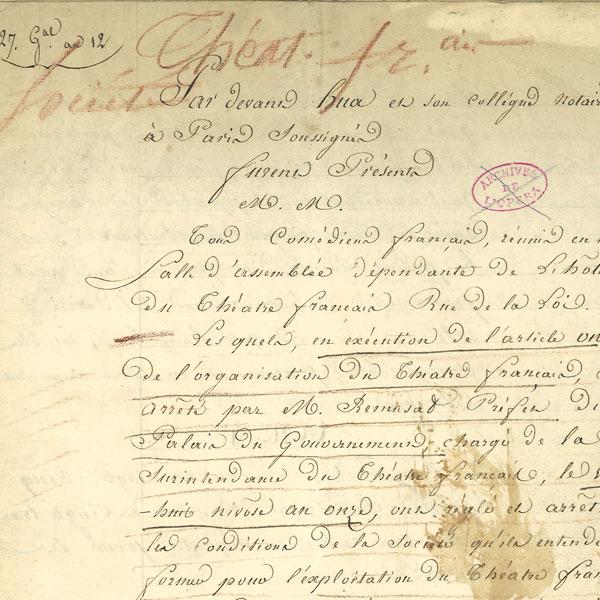 27. Gal an 12
Théat. fr.ais
Société
Par devant hua et son collégue notair
à Paris Soussignés
furent Présents
M. M.
ARCHIVES
DE
L'OPÉRA
Tous Comédiens français, réunis en
Salle d'assemblée dépendante de L'hôt
du Théatre français Rue de la Loi.
Lesquels, en exécution de l'article on
de l'organisation du Théatre français,
arrêté par M. Remusat Préfet du
Palais du Gouvernement chargé de la
Surintendance du Théatre français, le
-huit nivôse an onze, ont réglé et arrêt
les conditions de la Société qu'ils entende
former pour l'exploitation du Théatre fran